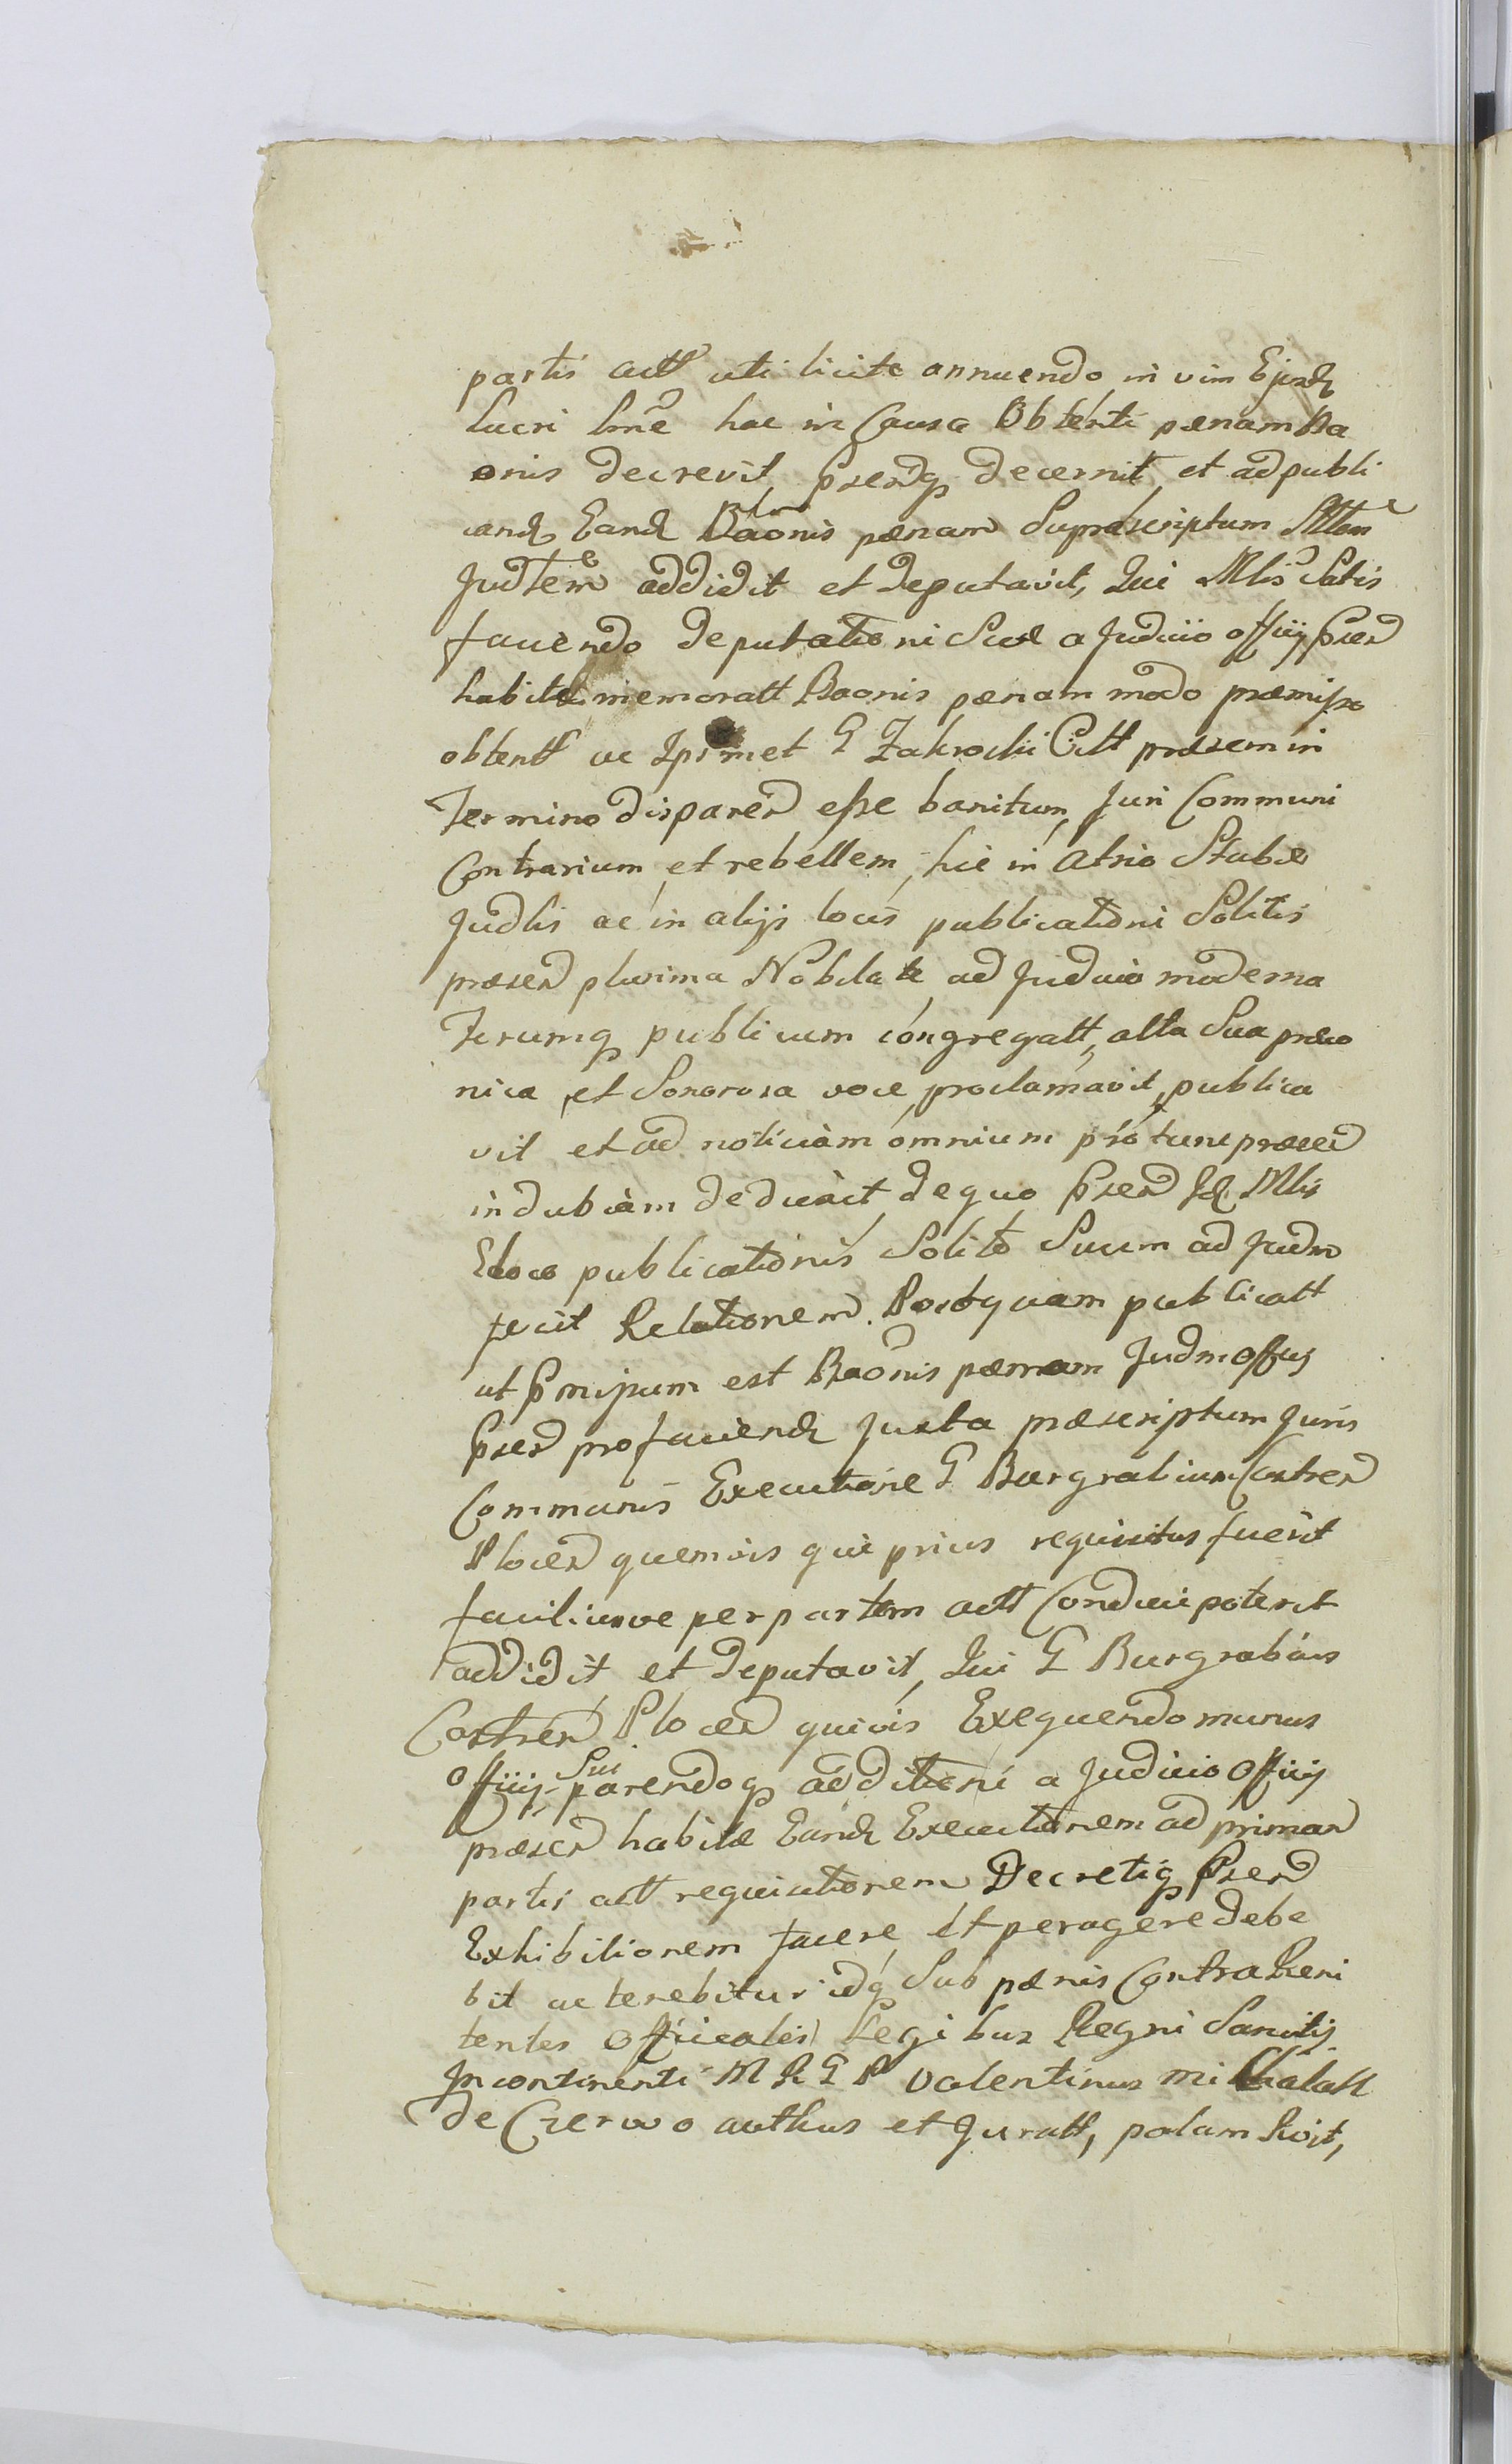 partis actt uti licite annuendo in vim Ejusd
lucri lmē hac in Causa Obtenti pænam Ba
onis decrevit, pserq decernit, et ad publi
cand Eand Baonis pænam Suprascriptum Mlem
Judlem addidit et deputavit, Qui Mlis Satis
faciendo deputationi Suæ a Judicio offiij psen
habitæ memoratt Baonis pænam modo præmisso
obtentt ac Ipsmet G Zakrocki Citt præsem in
Termino disparen esse banitum, Juri Communi
Contrarium et rebellem, hic in Atrio Stubæ
Judlis ac in alijs locis publicationi Solitis
præsen plurima Nobilitate ad Judicia moderna
Forumq publicum congregatt, alta Sua præco
nica, et Sonorosa voce, proclamavit, publica
vit et ad noticiam omnium pro tunc præsen
indubiam deduxit, de quo psen Jd Mlis
E loco publicationis Solito Suum ad Judm
fecit Relationem. Postquam publicatt
ut pmissum est Baonis pænam Judm offiij
psen pro faciend Juxta præscriptum Juris
Communis Executione G Burgrabium Castren
Plocen quemvis qui prius requisitus fuerit
faciliusve per partem actt Conduci poterit
addidit et deputavit, Qui G Burgrabius
Castren Plocen quivis Exequendo munus
offiij Sui parendoq additioni a Judicio Offiij
præsen habitæ Eand Executionem ad primar
partis actt requisitionem Decretiq psen
Exhibitionem facere et peragere debe
bit ac tenebitur idq Sub pænis Contra Reni
tentes Officiales Legibus Regni Sancitis.
In continenti M R G P Valentinus Michalatt
de Czerwo authus et Juratt, palam Rvit,